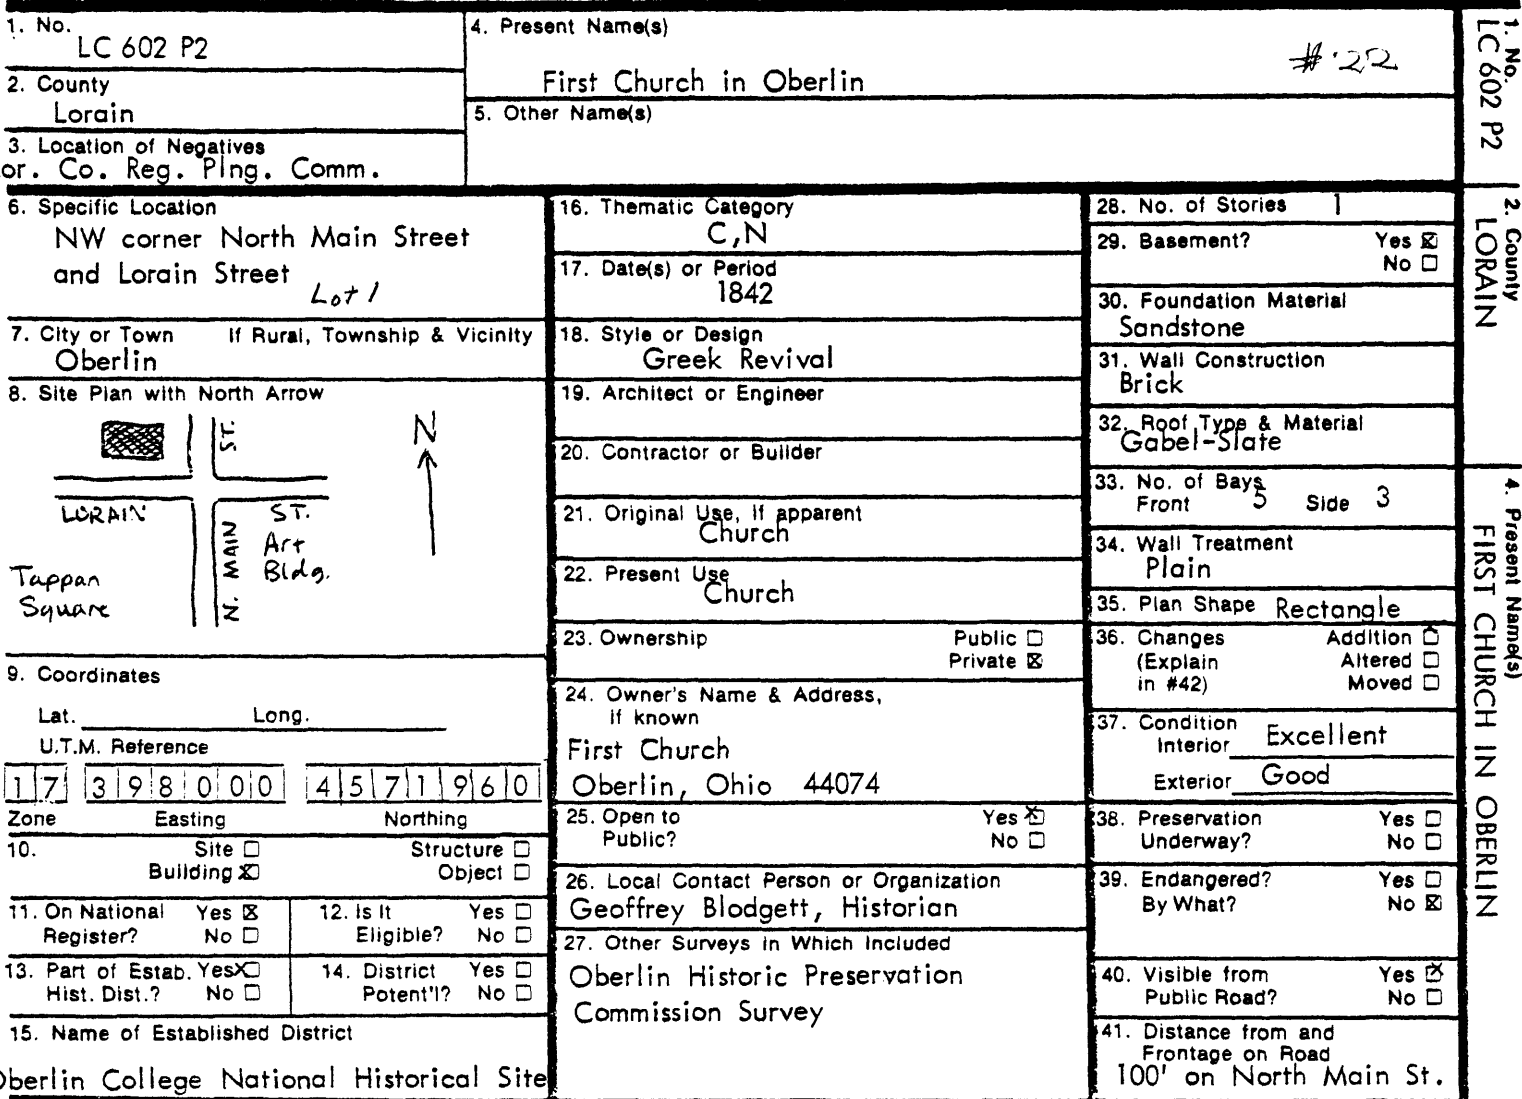 1. No.
LC 602 P2
2. County
Lorain
3. Location of Negatives
or. Co. Reg. Plng. Comm.
4. Present Name(s)
#22
First Church in Oberlin
5. Other Name(s)
6. Specific Location
NW corner North Main Street
and Lorain Street
Lot 1
7. City or Town If Rural, Township & Vicinity
Oberlin
8. Site Plan with North Arrow
ST.
N
LORAIN ST.
N. MAIN
Art
Bldg.
Tappan
Square
9. Coordinates
Lat. Long.
U.T.M. Reference
17 398000 4571960
Zone Easting Northing
10. Site Structure
Building Object
11. On National Yes
Register? No
12. Is It Yes
Eligible? No
13. Part of Estab. Yes
Hist. Dist.? No
14. District Yes
Potent'l? No
15. Name of Established District
Oberlin College National Historical Site
16. Thematic Category
C,N
17. Date(s) or Period
1842
18. Style or Design
Greek Revival
19. Architect or Engineer
20. Contractor or Builder
21. Original Use, if apparent
Church
22. Present Use
Church
23. Ownership Public
Private
24. Owner's Name & Address,
if known
First Church
Oberlin, Ohio 44074
25. Open to Yes
Public? No
26. Local Contact Person or Organization
Geoffrey Blodgett, Historian
27. Other Surveys in Which Included
Oberlin Historic Preservation
Commission Survey
28. No. of Stories 1
29. Basement? Yes
No
30. Foundation Material
Sandstone
31. Wall Construction
Brick
32. Roof Type & Material
Gabel-Slate
33. No. of Bays
Front 5 Side 3
34. Wall Treatment
Plain
35. Plan Shape Rectangle
36. Changes Addition
(Explain Altered
in #42) Moved
37. Condition
Interior Excellent
Exterior Good
38. Preservation Yes
Underway? No
39. Endangered? Yes
By What? No
40. Visible from Yes
Public Road? No
41. Distance from and
Frontage on Road
100' on North Main St.
1. No.
LC 602 P2
2. County
LORAIN
4. Present Name(s)
FIRST CHURCH IN OBERLIN